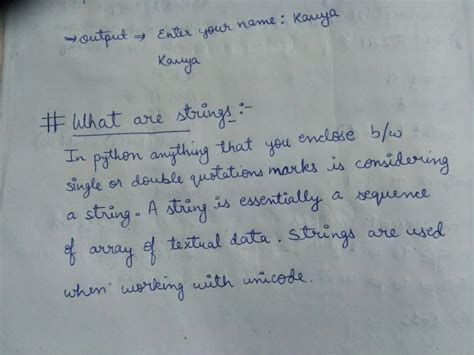 → Output ⇒ Enter your name: Kavya
Kavya
# What are strings:-
In python anything that you enclose b/w
single or double quotations marks is considering
a string. A string is essentially a sequence
of array of textual data. Strings are used
when working with unicode.